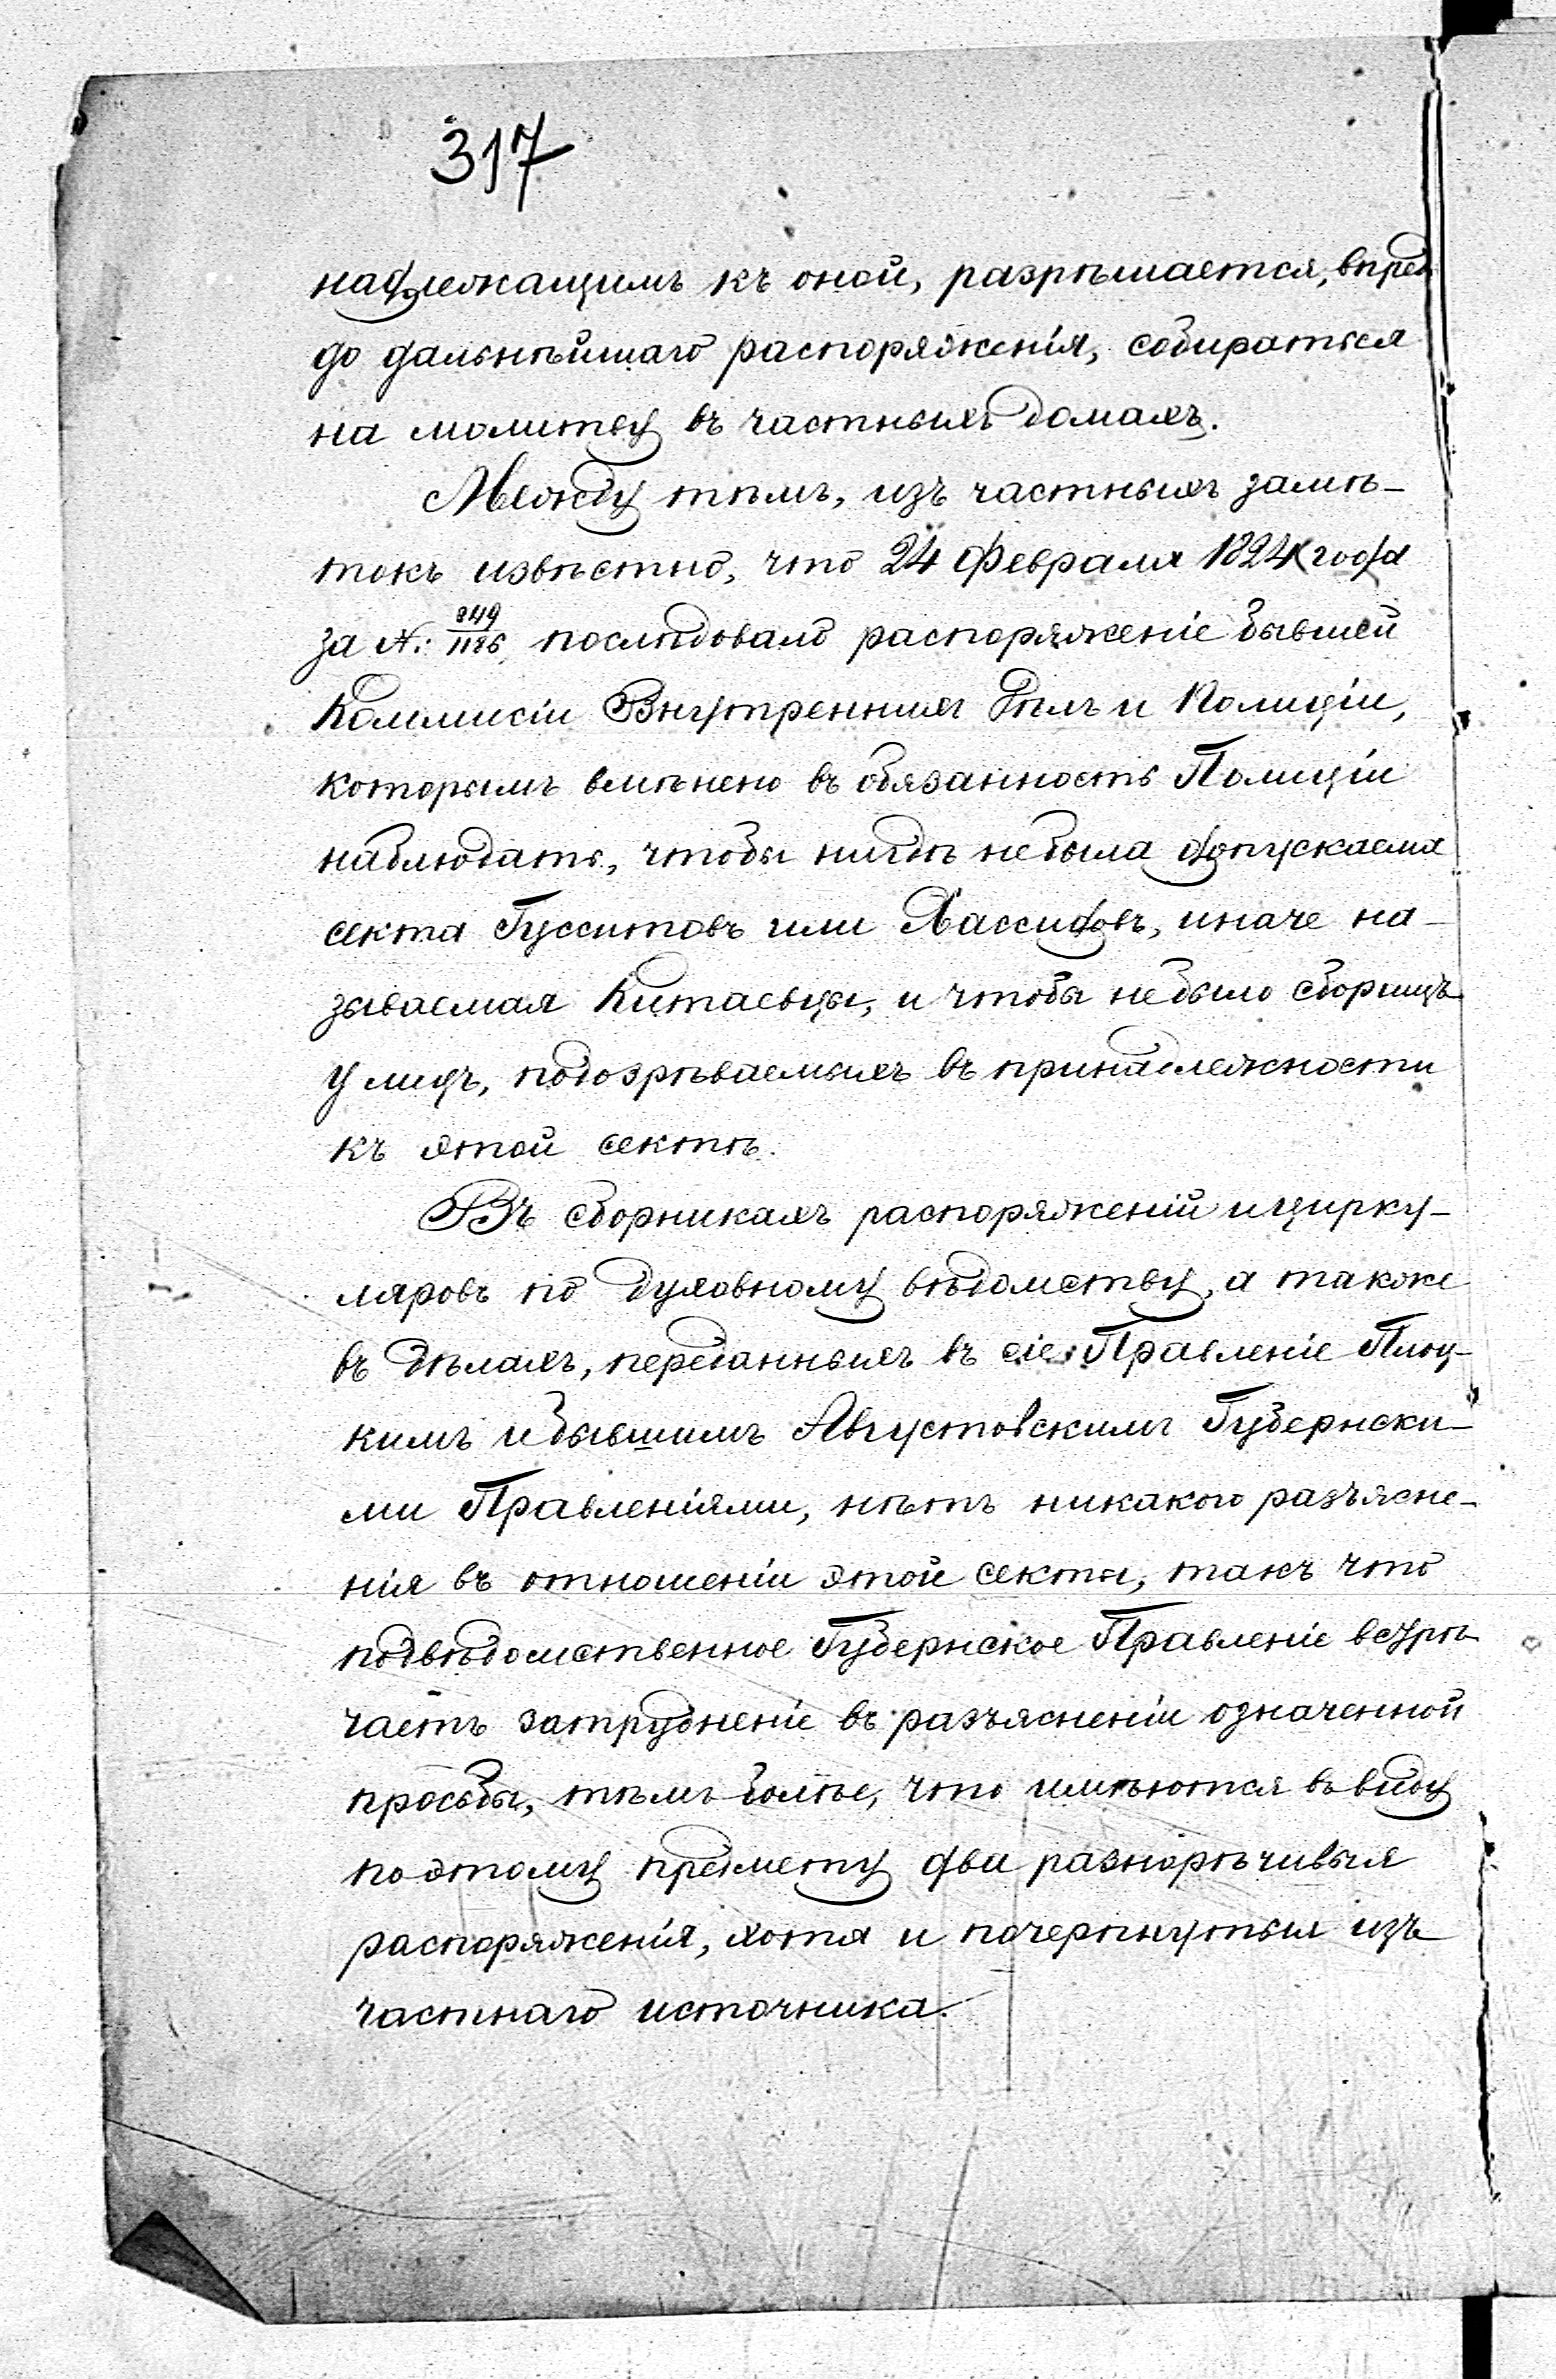 317
надлежащимъ къ оной, разрѣшается, впредь
до дальнѣйшаго распоряженія, собираться
на молитву въ частныхъ домахъ.
Между тѣмъ, изъ частныхъ замѣ-
токъ извѣстно, что 24 Февраля 1824 года
за №: 849/1186, послѣдовало распоряженіе бывшей
Коммисіи Внутреннихъ Дѣлъ и Полиціи,
которымъ вмѣнено въ обязанность Полиціи
наблюдать, чтобы нигдѣ не была допускаема
секта Гусситовъ или Хассидовъ, иначе на-
зываемая Китаевцы, и чтобы не было сборищъ
у лицъ, подозрѣваемыхъ въ принадлежности
къ этой сектѣ.
Въ сборникахъ распоряженій и цирку-
ляровъ по духовному вѣдомству, а также
въ дѣлахъ, переданныхъ въ сіе Правленіе Плоц-
кимъ и бывшимъ Августовскимъ Губернски-
ми Правленіями, нѣтъ никакого разъясне-
нія въ отношеніи этой секты, такъ что
подвѣдомственное Губернское Правленіе встрѣ-
чаетъ затрудненіе въ разъясненіи означенной
просьбы, тѣмъ болѣе, что имѣются въ виду
по этому предмету два разнорѣчивыя
распоряженія, хотя и почерпнутыя изъ
частнаго источника.